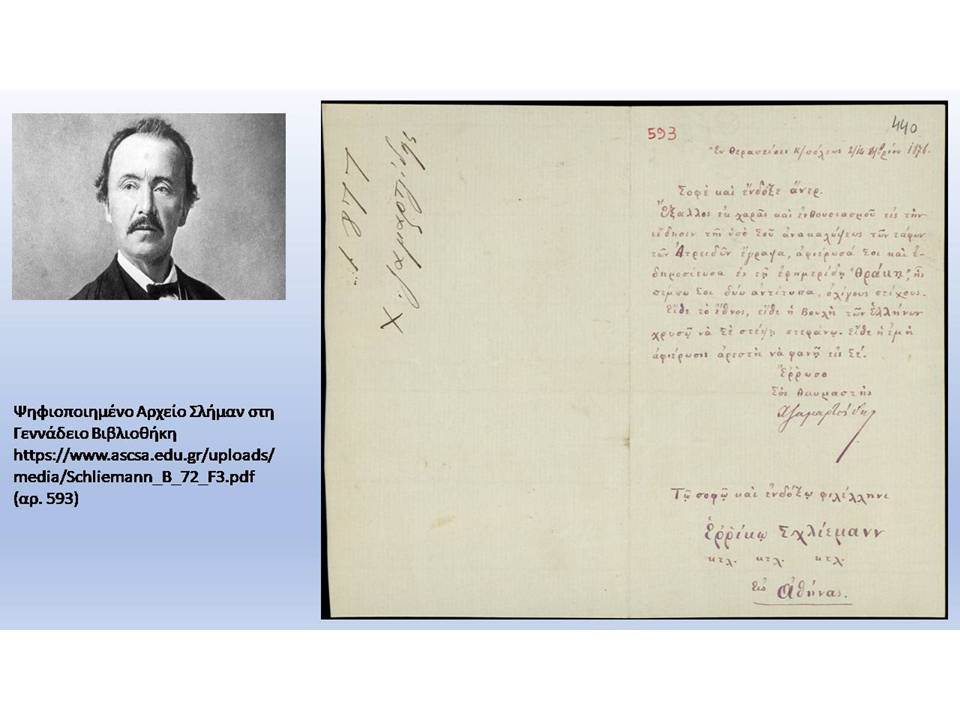 Ψηφιοποιημένο Αρχείο Σλήμαν στη
Γεννάδειο Βιβλιοθήκη
https://www.ascsa.edu.gr/uploads/
media/Schliemann_B_72_F3.pdf
(αρ. 593)
1877
593
440
Ἐν Θεραπείοις Κ/πόλεως 2/14 1876.
Σοφὲ καὶ ἔνδοξε ἄνερ.
Ἔξαλλος ἐκ χαρᾶς καὶ ἐνθουσιασμοῦ εἰς τὴν
εἴδησιν τῆς ὑπὸ Σοῦ ἀνακαλύψεως τῶν τάφων
τῶν Ἀτρειδῶν ἔγραψα, ἀφιέρωσά Σοι καὶ ἐ-
δημοσίευσα ἐν τῇ ἐφημερίδι "Θρᾴκῃ", ἧς
πέμπω Σοι δύω ἀντίτυπα, ὀλίγους στίχους.
Εἴθε τὸ ἔθνος, εἴθε ἡ Βουλὴ τῶν Ἑλλήνων
χρυσῷ νὰ Σὲ στέψῃ στεφάνῳ. Εἴθε ἡ ἐμὴ
ἀφιέρωσις ἀρεστὴ νὰ φανῇ εἰς Σέ.
Ἔρρωσο
Σὸς θαυμαστὴς
Τῷ σοφῷ καὶ ἐνδόξῳ φιλέλληνι
Ἑρρίκῳ Σχλίεμανν
κτλ. κτλ. κτλ.
Εἰς Ἀθήνας.